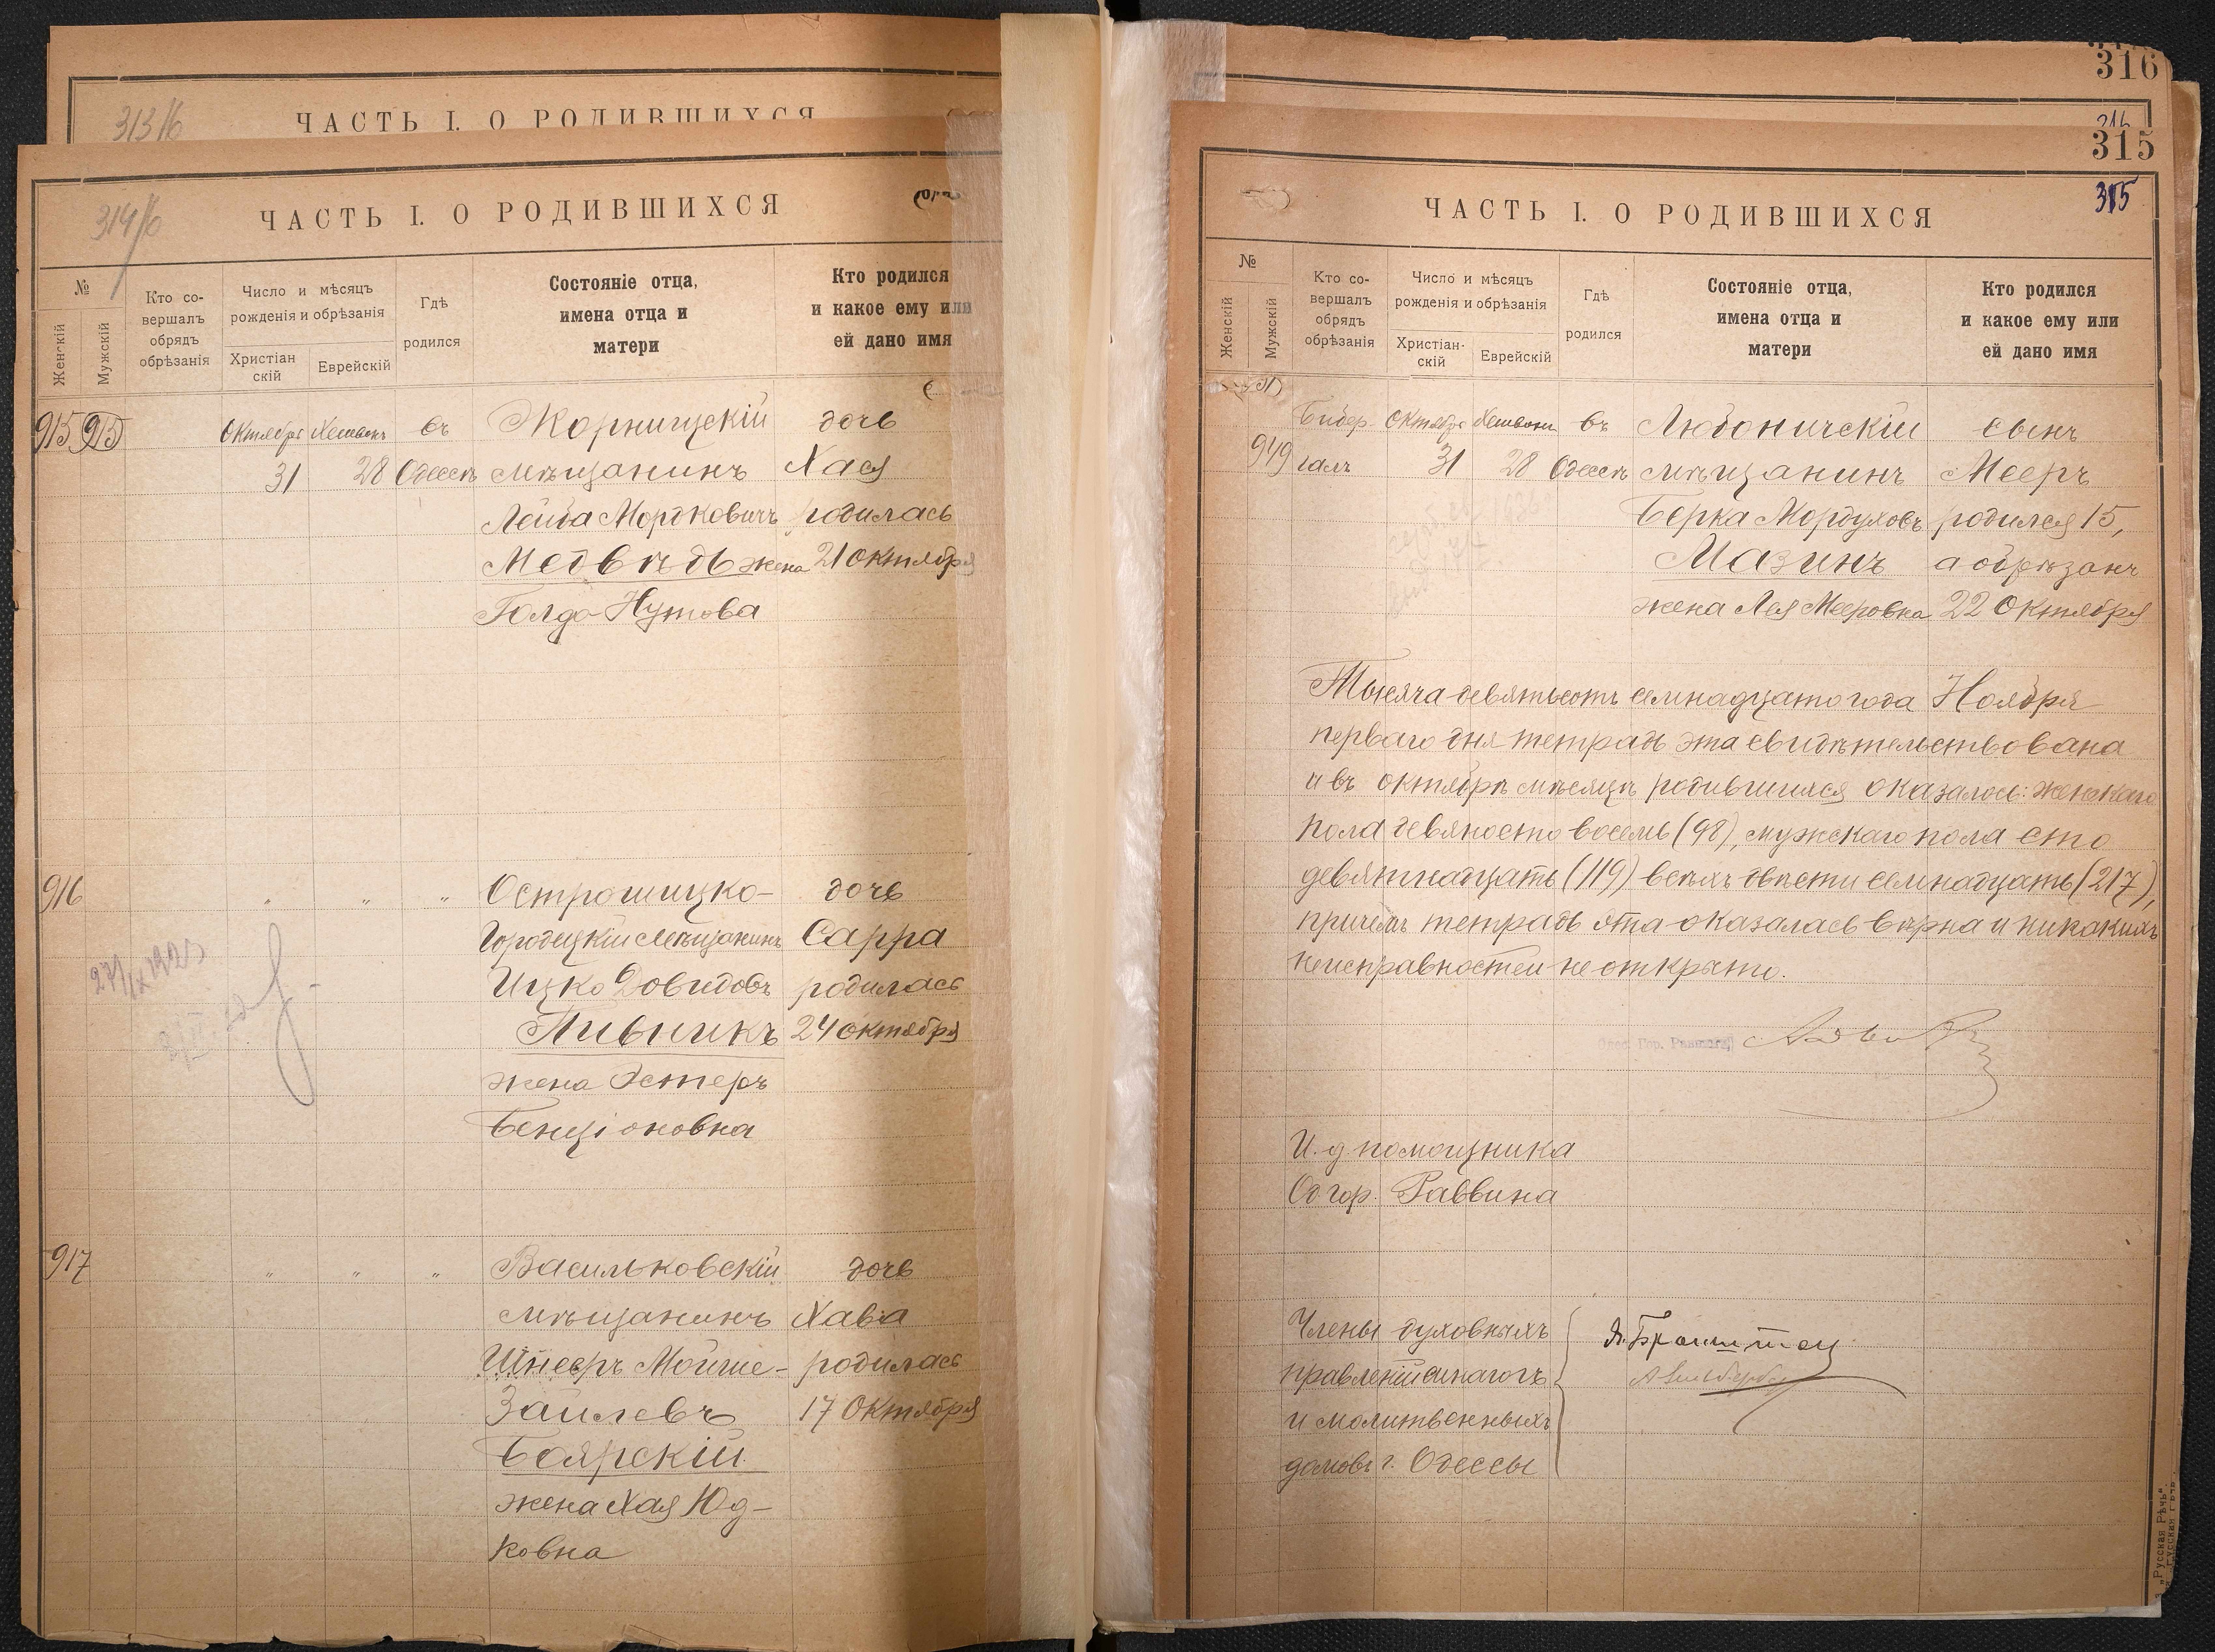 313/6
ЧАСТЬ I. О РОДИВШИХСЯ
314/6
ЧАСТЬ I. О РОДИВШИХСЯ
№
Женскій
Мужскій
Кто со-
вершалъ
обрядъ
обрѣзанія
Число и мѣсяцъ
рожденія и обрѣзанія
Христіан
скій
Еврейскій
Гдѣ
родился
Состояніе отца,
имена отца и
матери
Кто родился
и какое ему или
ей дано имя
915 915 Октября Хешвонъ въ Жорнищскій дочь
31 28 Одессѣ мѣщанинъ Хася
Лейба Мордковичъ родилась
Медвѣдь жена 21 Октября
Голда Нутова
916 " " " Острошицко- дочь
Городецкій мѣщанинъ Сарра
Ицко Довидовъ родилась
Пивникъ 24 октября
жена Эстеръ
Бенціоновна
917 " " " Васильковскій дочь
мѣщанинъ Хава
Шнееръ Мойше- родилась
Зайлевъ 17 Октября
Боярскій
жена Хая Юд-
ковна
316
316
315
315
ЧАСТЬ I. О РОДИВШИХСЯ
№
Женскій
Мужскій
Кто со-
вершалъ
обрядъ
обрѣзанія
Число и мѣсяцъ
рожденія и обрѣзанія
Христіан-
скій
Еврейскій
Гдѣ
родился
Состояніе отца,
имена отца и
матери
Кто родился
и какое ему или
ей дано имя
Бибер. Октября Хешвонъ въ Любоничскій сынъ
949 галъ 31 28 Одессѣ мѣщанинъ Мееръ
Берка Мордуховъ родился 15,
Мазинъ а обрѣзанъ
жена Лея Мееровна 22 Октября
Тысяча девятьсотъ семнадцатого года Ноября
перваго дня тетрадь эта свидѣтельствована
и въ октябрѣ мѣсяцѣ родившихся оказалось: женскаго
пола девяносто восемь (98), мужскаго пола сто
девятнадцать (119) всѣхъ двѣсти семнадцать (217),
причемъ тетрадь эта оказалась вѣрна и никакихъ
неисправностей не открыто.
И. д. помощника
Од гор. Раввина
Члены духовныхъ
правленій синагогъ
и молитвенныхъ
домовъ г. Одессы
„Русская Рѣчь“